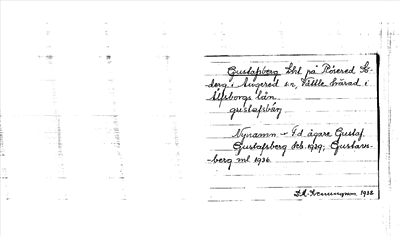 Gustafsberg lht på Rösered Sö-
derg i Angered sn, Vättle härad i
Älfsborgs län.
gustafsbärj
Nynamn. - F.d. ägare Gustaf.
Gustafsberg Adb. 1929; Gustavs-
-berg ml 1936.
1938